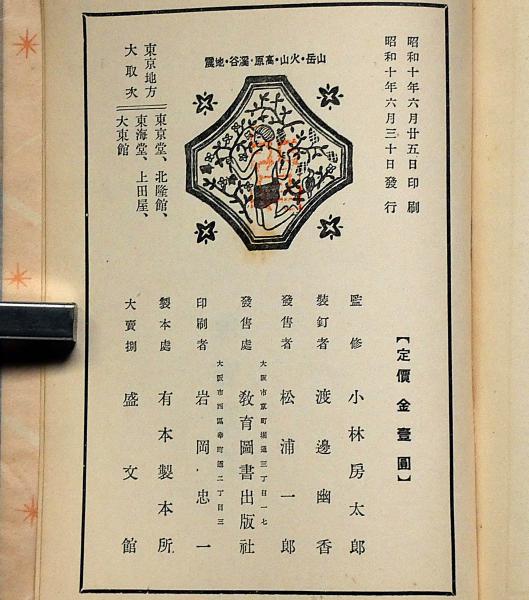 昭和十年六月廿五日印刷
昭和十年六月三十日發行
【定價金壹圓】
山岳・火山・高原・溪谷・地震
監修 小林房太郎
裝釘者 渡邊幽香
發售者 松浦一郎
大阪市京町堀通三丁目一七
發售處 教育圖書出版社
大阪市西區幸町通二丁目三
印刷者 岩岡忠一
製本處 有本製本所
大賣捌 盛文館
東京地方
大取次
東京堂、北隆館、
東海堂、上田屋、
大東館